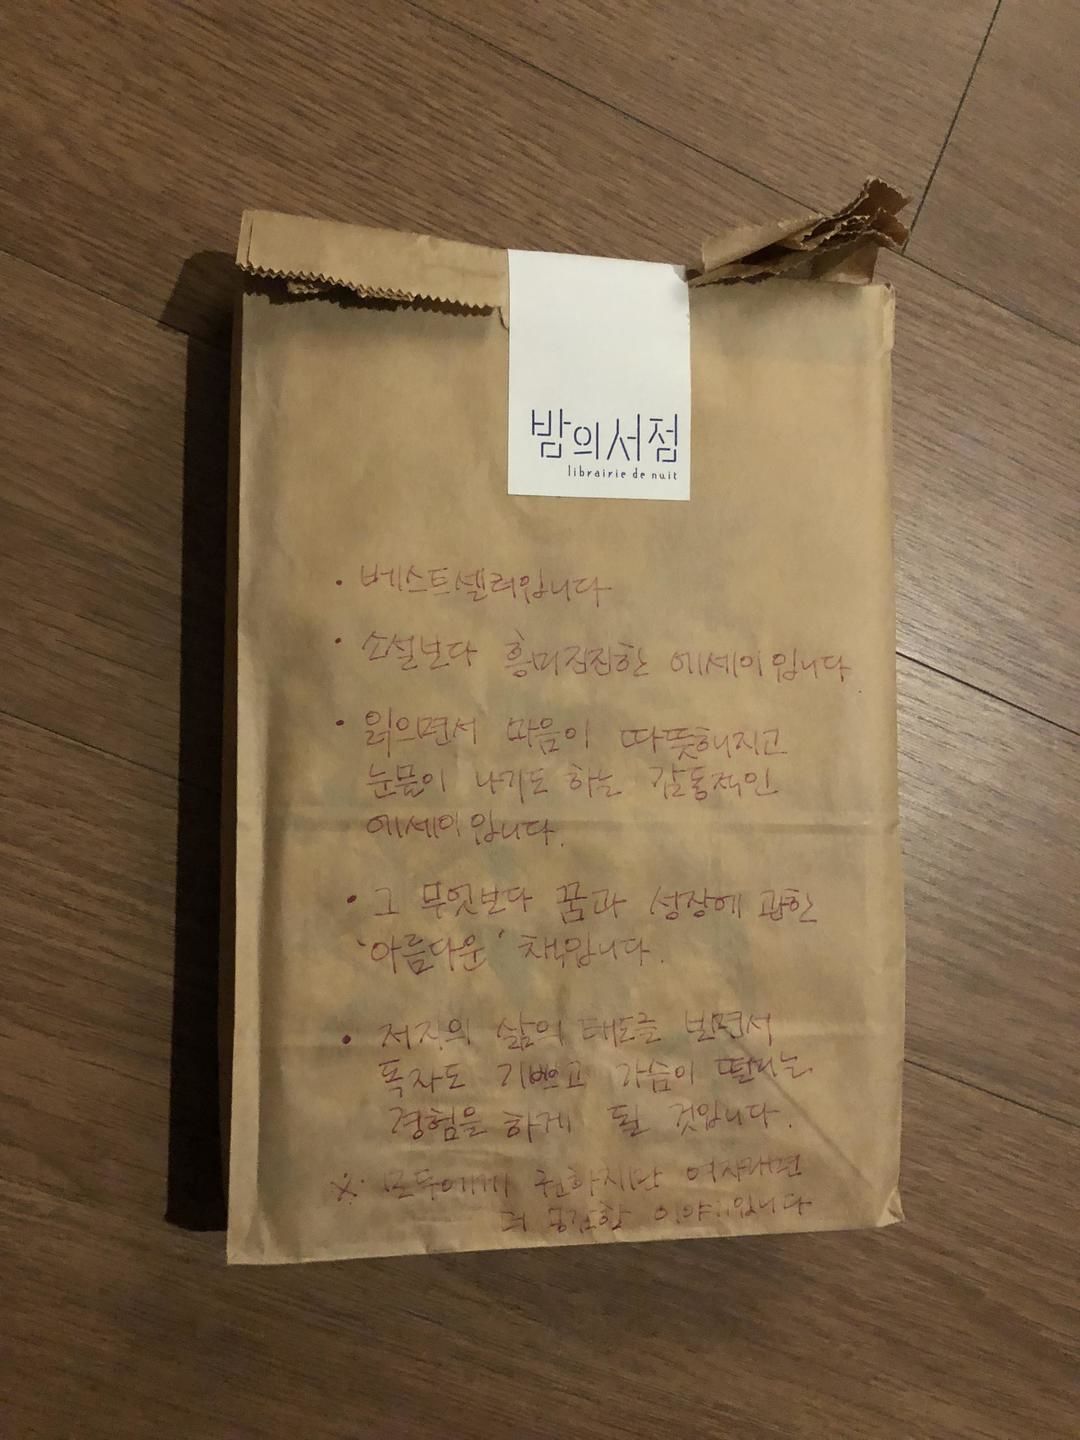 밤의서점
librairie de nuit
· 베스트셀러입니다
· 소설보다 흥미진진한 에세이입니다
· 읽으면서 마음이 따뜻해지고
눈물이 나기도 하는 감동적인
에세이입니다.
· 그 무엇보다 꿈과 성장에 관한
'아름다운' 책입니다.
· 저자의 삶의 태도를 보면서
독자도 기쁘고 가슴이 떨리는
경험을 하게 될 것입니다.
※ 모두에게 권하지만 여자라면
더 공감할 이야기입니다